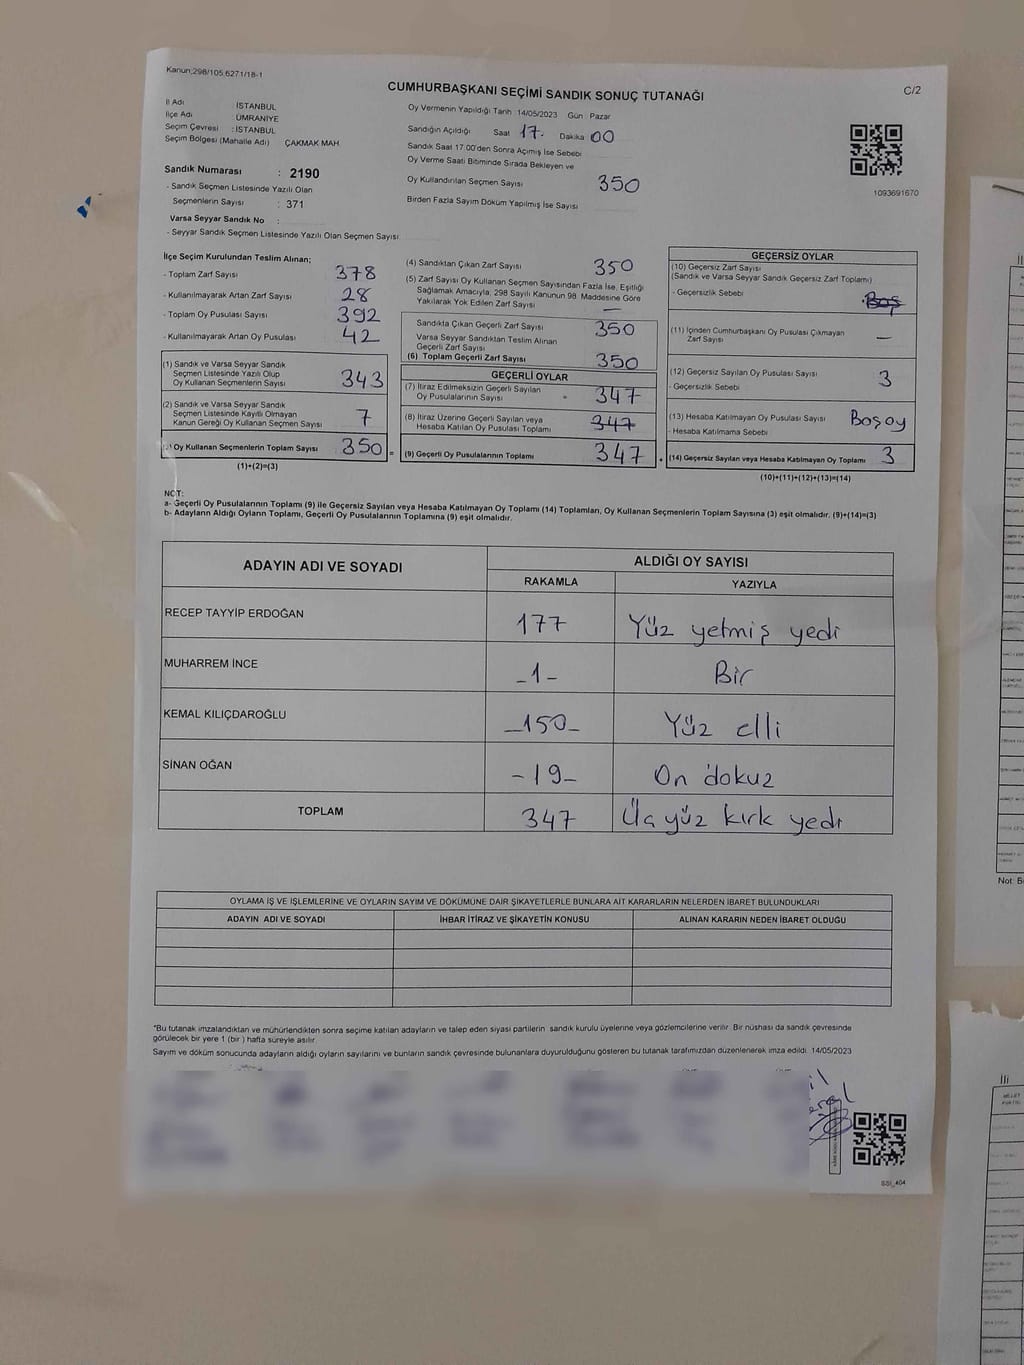 Kanun;298/105,6271/18-1
CUMHURBAŞKANI SEÇİMİ SANDIK SONUÇ TUTANAĞI
C/2
İl Adı : İSTANBUL
İlçe Adı : ÜMRANİYE
Seçim Çevresi : İSTANBUL
Seçim Bölgesi (Mahalle Adı) ÇAKMAK MAH.
Sandık Numarası : 2190
- Sandık Seçmen Listesinde Yazılı Olan
Seçmenlerin Sayısı : 371
Varsa Seyyar Sandık No :
- Seyyar Sandık Seçmen Listesinde Yazılı Olan Seçmen Sayısı:
Oy Vermenin Yapıldığı Tarih : 14/05/2023 Gün : Pazar
Sandığın Açıldığı Saat 17. Dakika 00
Sandık Saat 17:00'den Sonra Açılmış İse Sebebi :
Oy Verme Saati Bitiminde Sırada Bekleyen ve
Oy Kullandırılan Seçmen Sayısı 350
Birden Fazla Sayım Döküm Yapılmış İse Sayısı :
1093691670
İlçe Seçim Kurulundan Teslim Alınan;
- Toplam Zarf Sayısı 378
- Kullanılmayarak Artan Zarf Sayısı 28
- Toplam Oy Pusulası Sayısı 392
- Kullanılmayarak Artan Oy Pusulası 42
(1) Sandık ve Varsa Seyyar Sandık
Seçmen Listesinde Yazılı Olup
Oy Kullanan Seçmenlerin Sayısı 343
(2) Sandık ve Varsa Seyyar Sandık
Seçmen Listesinde Kayıtlı Olmayan
Kanun Gereği Oy Kullanan Seçmen Sayısı 7
(3) Oy Kullanan Seçmenlerin Toplam Sayısı 350 =
(1)+(2)=(3)
(4) Sandıktan Çıkan Zarf Sayısı 350
(5) Zarf Sayısı Oy Kullanan Seçmen Sayısından Fazla İse, Eşitliği
Sağlamak Amacıyla; 298 Sayılı Kanunun 98. Maddesine Göre
Yakılarak Yok Edilen Zarf Sayısı —
Sandıkta Çıkan Geçerli Zarf Sayısı 350
Varsa Seyyar Sandıktan Teslim Alınan
Geçerli Zarf Sayısı
(6) Toplam Geçerli Zarf Sayısı 350
GEÇERLİ OYLAR
(7) İtiraz Edilmeksizin Geçerli Sayılan
Oy Pusulalarının Sayısı 347
(8) İtiraz Üzerine Geçerli Sayılan veya
Hesaba Katılan Oy Pusulası Toplamı 347
(9) Geçerli Oy Pusulalarının Toplamı 347
GEÇERSİZ OYLAR
(10) Geçersiz Zarf Sayısı
(Sandık ve Varsa Seyyar Sandık Geçersiz Zarf Toplamı)
- Geçersizlik Sebebi Boş
(11) İçinden Cumhurbaşkanı Oy Pusulası Çıkmayan
Zarf Sayısı —
(12) Geçersiz Sayılan Oy Pusulası Sayısı 3
- Geçersizlik Sebebi
(13) Hesaba Katılmayan Oy Pusulası Sayısı Boş oy
- Hesaba Katılmama Sebebi
(14) Geçersiz Sayılan veya Hesaba Katılmayan Oy Toplamı 3
(10)+(11)+(12)+(13)=(14)
NOT:
a- Geçerli Oy Pusulalarının Toplamı (9) ile Geçersiz Sayılan veya Hesaba Katılmayan Oy Toplamı (14) Toplamları, Oy Kullanan Seçmenlerin Toplam Sayısına (3) eşit olmalıdır. (9)+(14)=(3)
b- Adayların Aldığı Oyların Toplamı, Geçerli Oy Pusulalarının Toplamına (9) eşit olmalıdır.
ADAYIN ADI VE SOYADI
ALDIĞI OY SAYISI
RAKAMLA YAZIYLA
RECEP TAYYİP ERDOĞAN 177 Yüz yetmiş yedi
MUHARREM İNCE -1- Bir
KEMAL KILIÇDAROĞLU -150- Yüz elli
SİNAN OĞAN -19- On dokuz
TOPLAM 347 Üç yüz kırk yedi
OYLAMA İŞ VE İŞLEMLERİNE VE OYLARIN SAYIM VE DÖKÜMÜNE DAİR ŞİKAYETLERLE BUNLARA AİT KARARLARIN NELERDEN İBARET BULUNDUKLARI
ADAYIN ADI VE SOYADI İHBAR İTİRAZ VE ŞİKAYETİN KONUSU ALINAN KARARIN NEDEN İBARET OLDUĞU
*Bu tutanak imzalandıktan ve mühürlendikten sonra seçime katılan adayların ve talep eden siyasi partilerin sandık kurulu üyelerine veya gözlemcilerine verilir. Bir nüshası da sandık çevresinde
görülecek bir yere 1 (bir) hafta süreyle asılır.
Sayım ve döküm sonucunda adayların aldığı oyların sayılarını ve bunların sandık çevresinde bulunanlara duyurulduğunu gösteren bu tutanak tarafımızdan düzenlenerek imza edildi. 14/05/2023
SSI_404